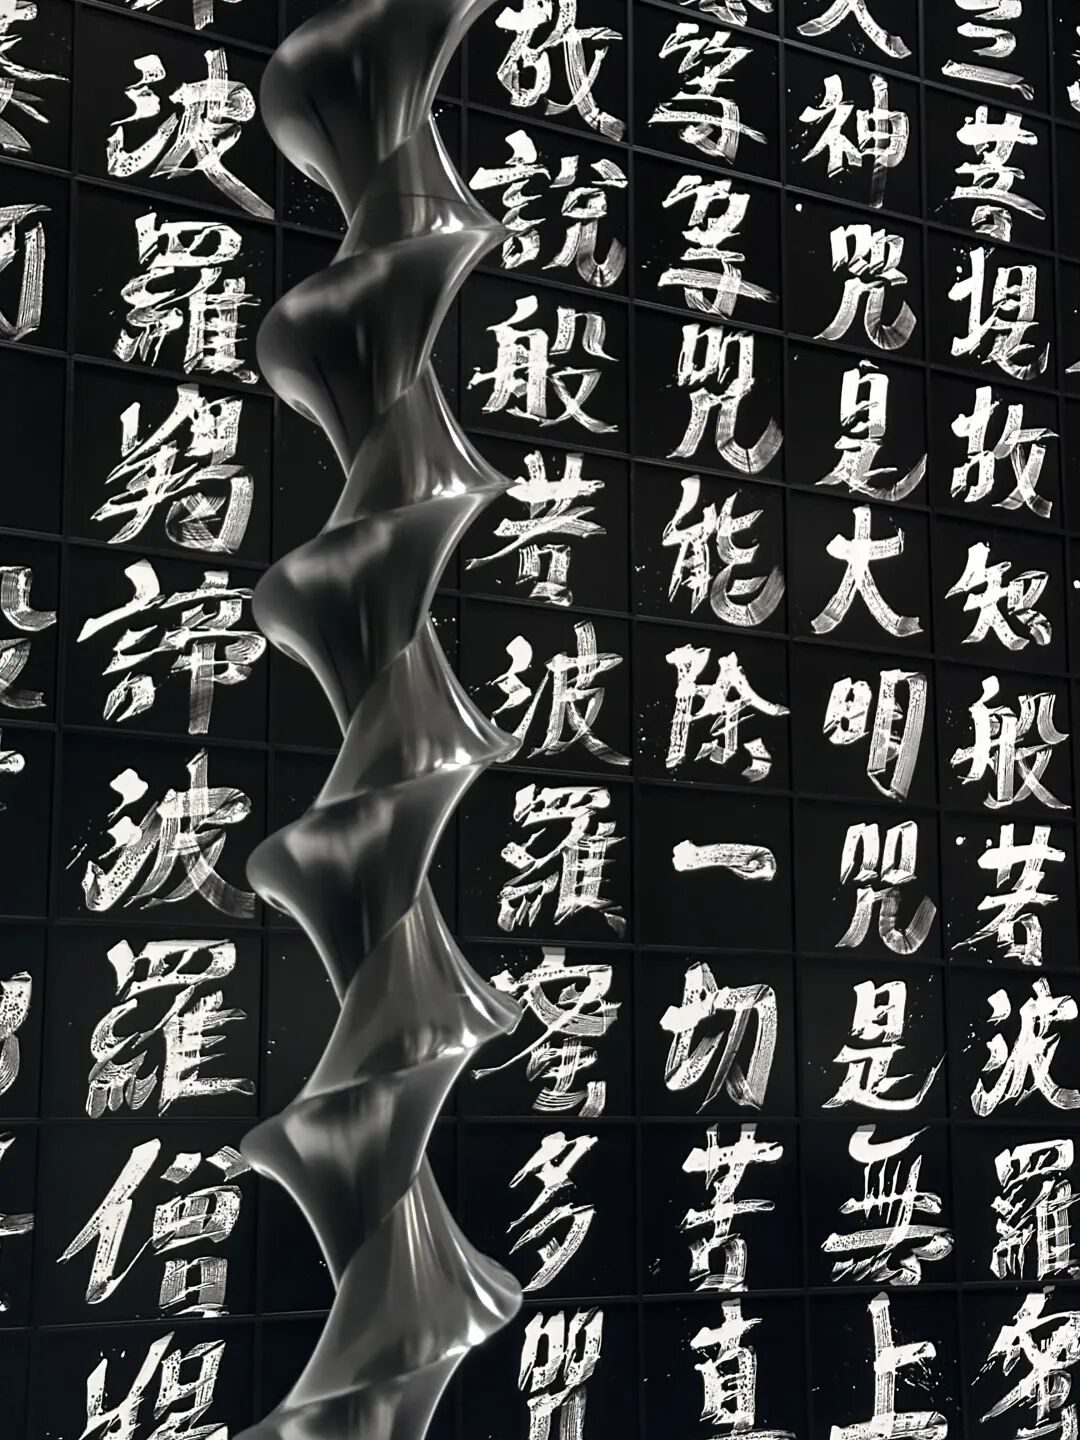 三菩提故知般若波羅蜜
大神咒是大明咒是無上
等等咒能除一切苦真
故說般若波羅蜜多咒
波羅羯諦波羅僧羯